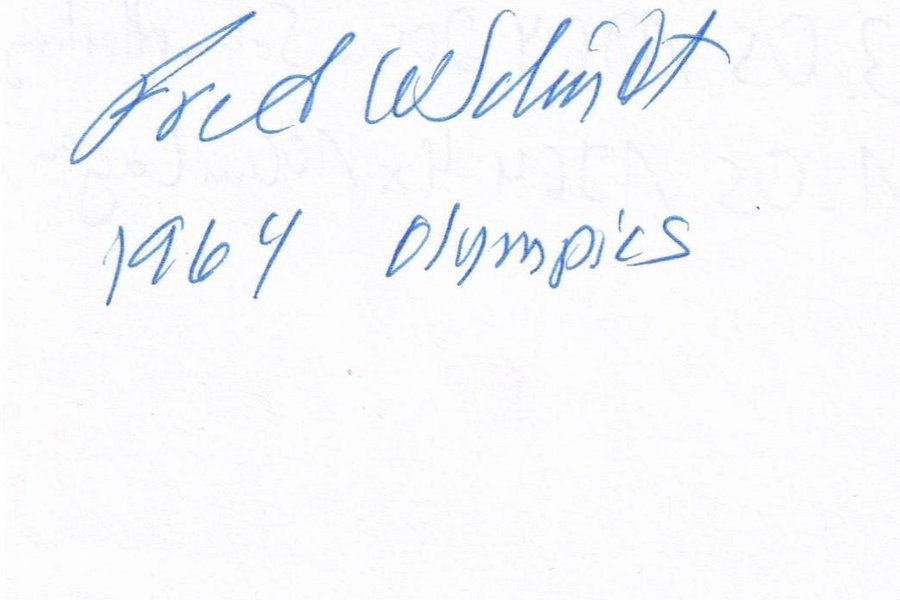 Fred W Schmidt
1964 Olympics